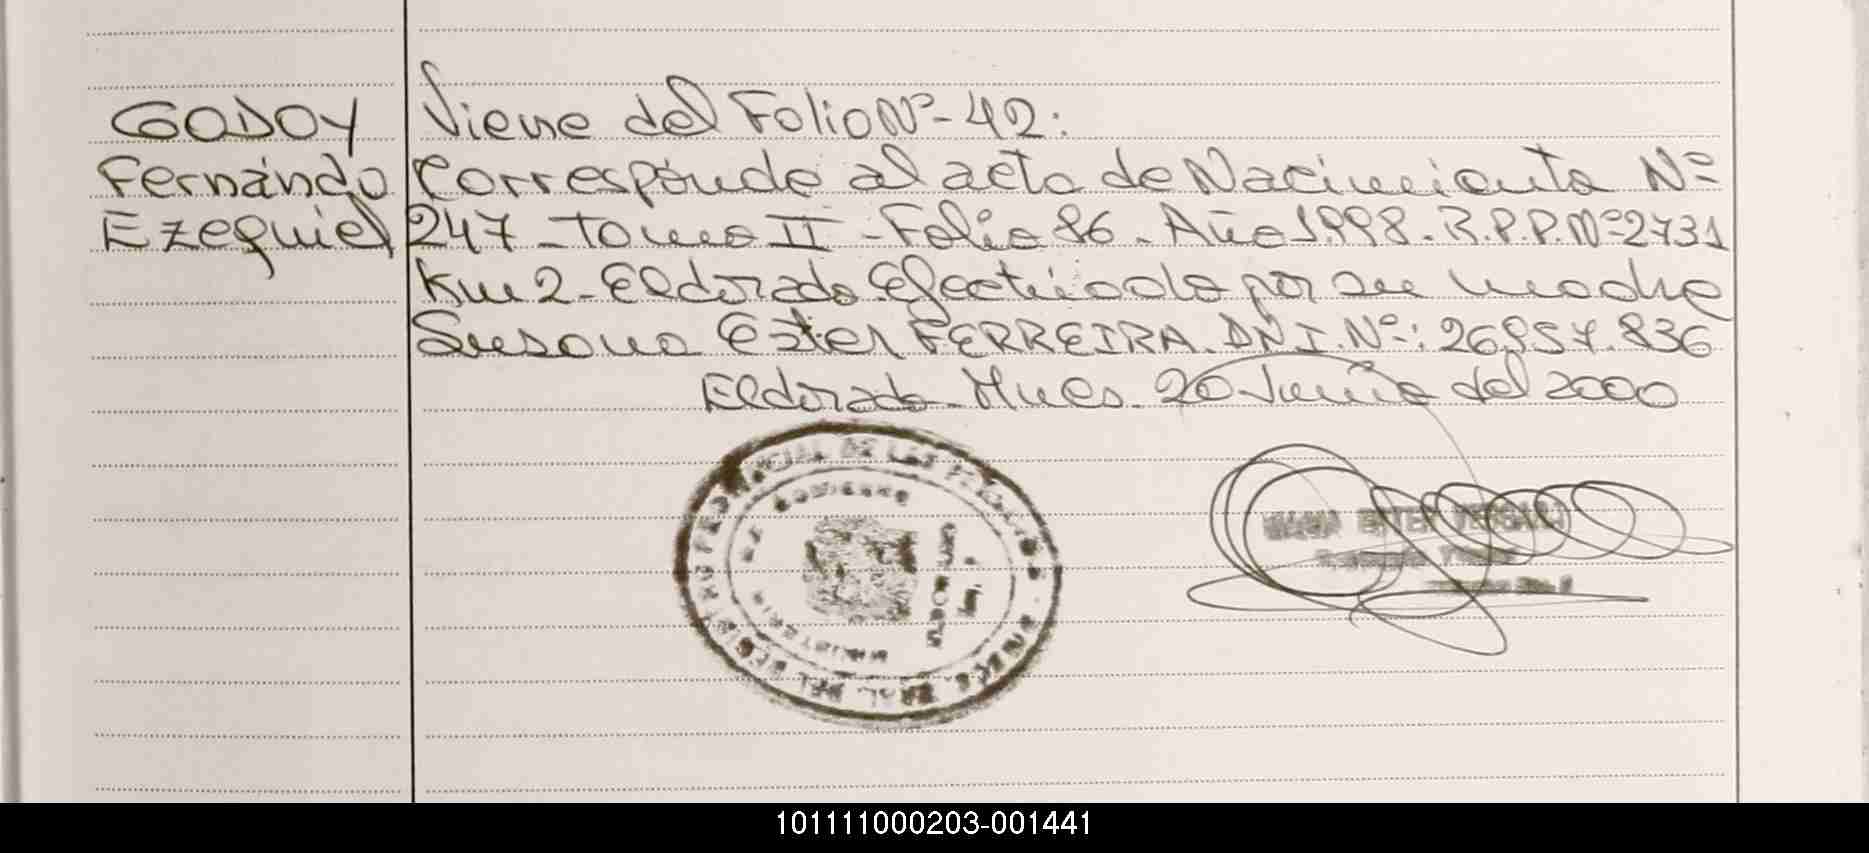 GODOY
Fernando
Ezequiel
Viene del Folio Nº- 42:
Corresponde al acta de Nacimiento Nº
247 - Tomo II - Folio 86 - Año 1.998. R.P.P. Nº 2731
Km 2 - Eldorado. Efectuado por su madre
Susana Ester FERREIRA. D.N.I. Nº: 26.957.836
Eldorado - Mnes. 20 Junio del 2000
101111000203-001441